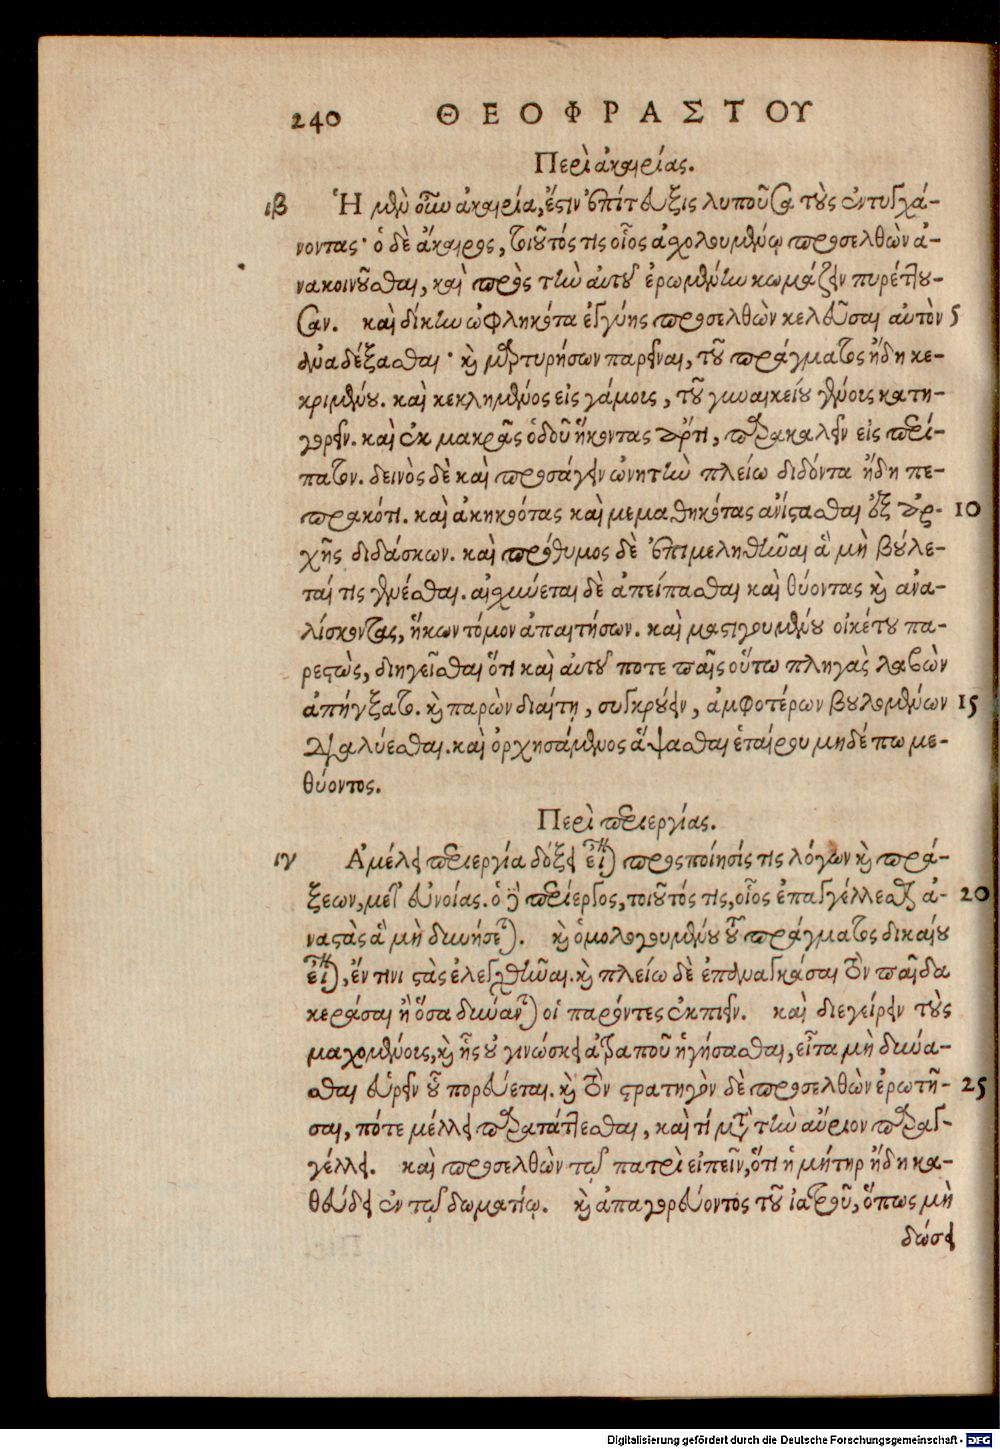 240 ΘΕΟΦΡΑΣΤΟΥ
Περὶ ἀκαιρίας.
ιβ Ἡ μὲν οὖν ἀκαιρία, ἐστὶν ἐπίτευξις λυποῦσα τοὺς ἐντυγχά-
νοντας· ὁ δὲ ἄκαιρος, τοιοῦτός τις οἷος ἀχολουμένῳ προσελθὼν ἀ-
νακοινοῦσθαι, καὶ πρὸς τὴν αὐτοῦ ἐρωμένην κωμάζειν πυρέττου-
σαν. καὶ δίκην ὠφληκότα ἐγγύης προσελθὼν κελεῦσαι αὐτὸν 5
ἀναδέξασθαι· καὶ μαρτυρήσων παρεῖναι, τοῦ πράγματος ἤδη κε-
κριμένου. καὶ κεκλημένος εἰς γάμους, τοῦ γυναικείου γένους κατη-
γορεῖν. καὶ ἐκ μακρᾶς ὁδοῦ ἥκοντας ἄρτι, παρακαλεῖν εἰς περί-
πατον. δεινὸς δὲ καὶ προσάγειν ὠνητὴν πλείω διδόντα ἤδη πε-
πρακότι. καὶ ἀκηκοότας καὶ μεμαθηκότας ἀνίστασθαι ἐξ ἀρ- 10
χῆς διδάσκων. καὶ πρόθυμος δὲ ἐπιμεληθῆναι ἃ μὴ βούλε-
ταί τις γενέσθαι. αἰσχύνεται δὲ ἀπείπασθαι καὶ θύοντας καὶ ἀνα-
λίσκοντας, ἥκων τόμον ἀπαιτήσων. καὶ μαστιγουμένου οἰκέτου πα-
ρεστὼς, διηγεῖσθαι ὅτι καὶ αὐτοῦ ποτε παῖς οὕτω πληγὰς λαβὼν
ἀπήγξατο. καὶ παρὼν διαίτῃ, συγκρούειν, ἀμφοτέρων βουλομένων 15
διαλύεσθαι. καὶ ὀρχησάμενος ἅψασθαι ἑταίρου μηδέπω με-
θύοντος.
Περὶ περιεργίας.
ιγ Ἀμέλει περιεργία δόξει εἶναι προσποίησίς τις λόγων καὶ πρά-
ξεων, μετ' εὐνοίας. ὁ δὲ περίεργος, τοιοῦτός τις, οἷος ἐπαγγέλλεσθαι ἀ- 20
ναστὰς ἃ μὴ δυνήσεται. καὶ ὁμολογουμένου τοῦ πράγματος δικαίου
εἶναι, ἔν τινι στὰς ἐλεγχθῆναι. καὶ πλείω δὲ ἐπαναγκάσαι τὸν παῖδα
κεράσαι ἢ ὅσα δύνανται οἱ παρόντες ἐκπιεῖν. καὶ διεγείρειν τοὺς
μαχομένους, καὶ ἧς οὐ γινώσκει ἀτραποῦ ἡγήσασθαι, εἶτα μὴ δύνα-
σθαι εὑρεῖν οὗ πορεύεται. καὶ τὸν στρατηγὸν δὲ προσελθὼν ἐρωτῆ- 25
σαι, πότε μέλλει παρατάττεσθαι, καὶ τί μετὰ τὴν αὔριον παραγ-
γέλλει. καὶ προσελθὼν τῷ πατρὶ εἰπεῖν, ὅτι ἡ μήτηρ ἤδη κα-
θεύδει ἐν τῷ δωματίῳ. καὶ ἀπαγορεύοντος τοῦ ἰατροῦ, ὅπως μὴ
δώσει
Digitalisierung gefördert durch die Deutsche Forschungsgemeinschaft - DFG